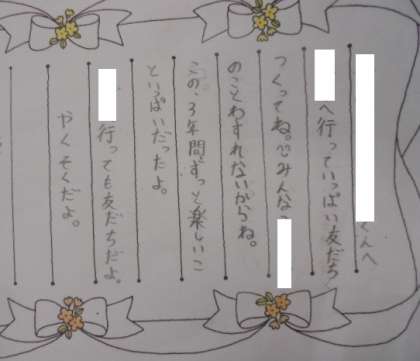 くんへ
へ行っていっぱい友だち
つくってね。みんな
のことわすれないからね。
この、3年間ずっと楽しいこ
といっぱいだったよ。
行っても友だちだよ。
やくそくだよ。